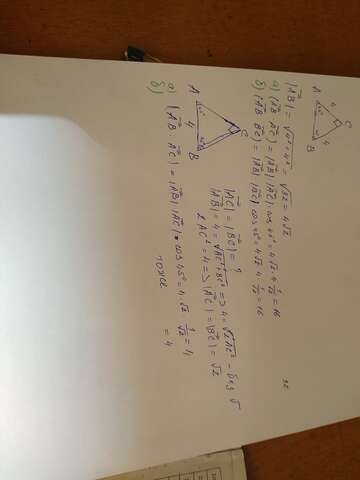 A
C
B
4
4
45°
|AB| = √4²+4² = √32 = 4√2
а) (AB AC) = |AB| |AC| · cos 45° = 4√2 · 4 · 1/√2 = 16
б) (AB BC) = |AB| |AC| · cos 45° = 4√2 · 4 · 1/√2 = 16
A
C
B
4
45°
|AC| = |BC| = ?
|AB| = 4 = √AC²+BC² => 4 = √2AC² - без √
2AC² = 4 => |AC| = |BC| = √2
а) (AB AC) = |AB| |AC| · cos 45° = 4 · √2 · 1/√2 = 4
б) тоже = 4